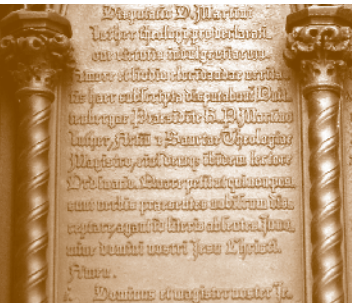 Disputatio D. Martini
Luther theologi, pro declarati
one virtutis indulgentiarum.
Amore et studio elucidandae verita
tis haec subscripta disputabunt
Praesidēte R. P. Martino
Luther, Artiū & Sanctae Theologiae
Magistro, eiusdemq; ibidem lectore
Ordinario. Quare petit ut qui non pos
sunt verbis praesentes nobiscum disc
eptare agant id literis absentes. In no
mine domini nostri Jesu Christi.
Amen.
Dominus et magister noster Je